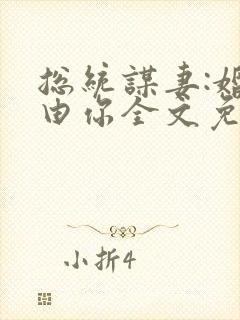 总統謀妻:婚
由你全文免
小折4